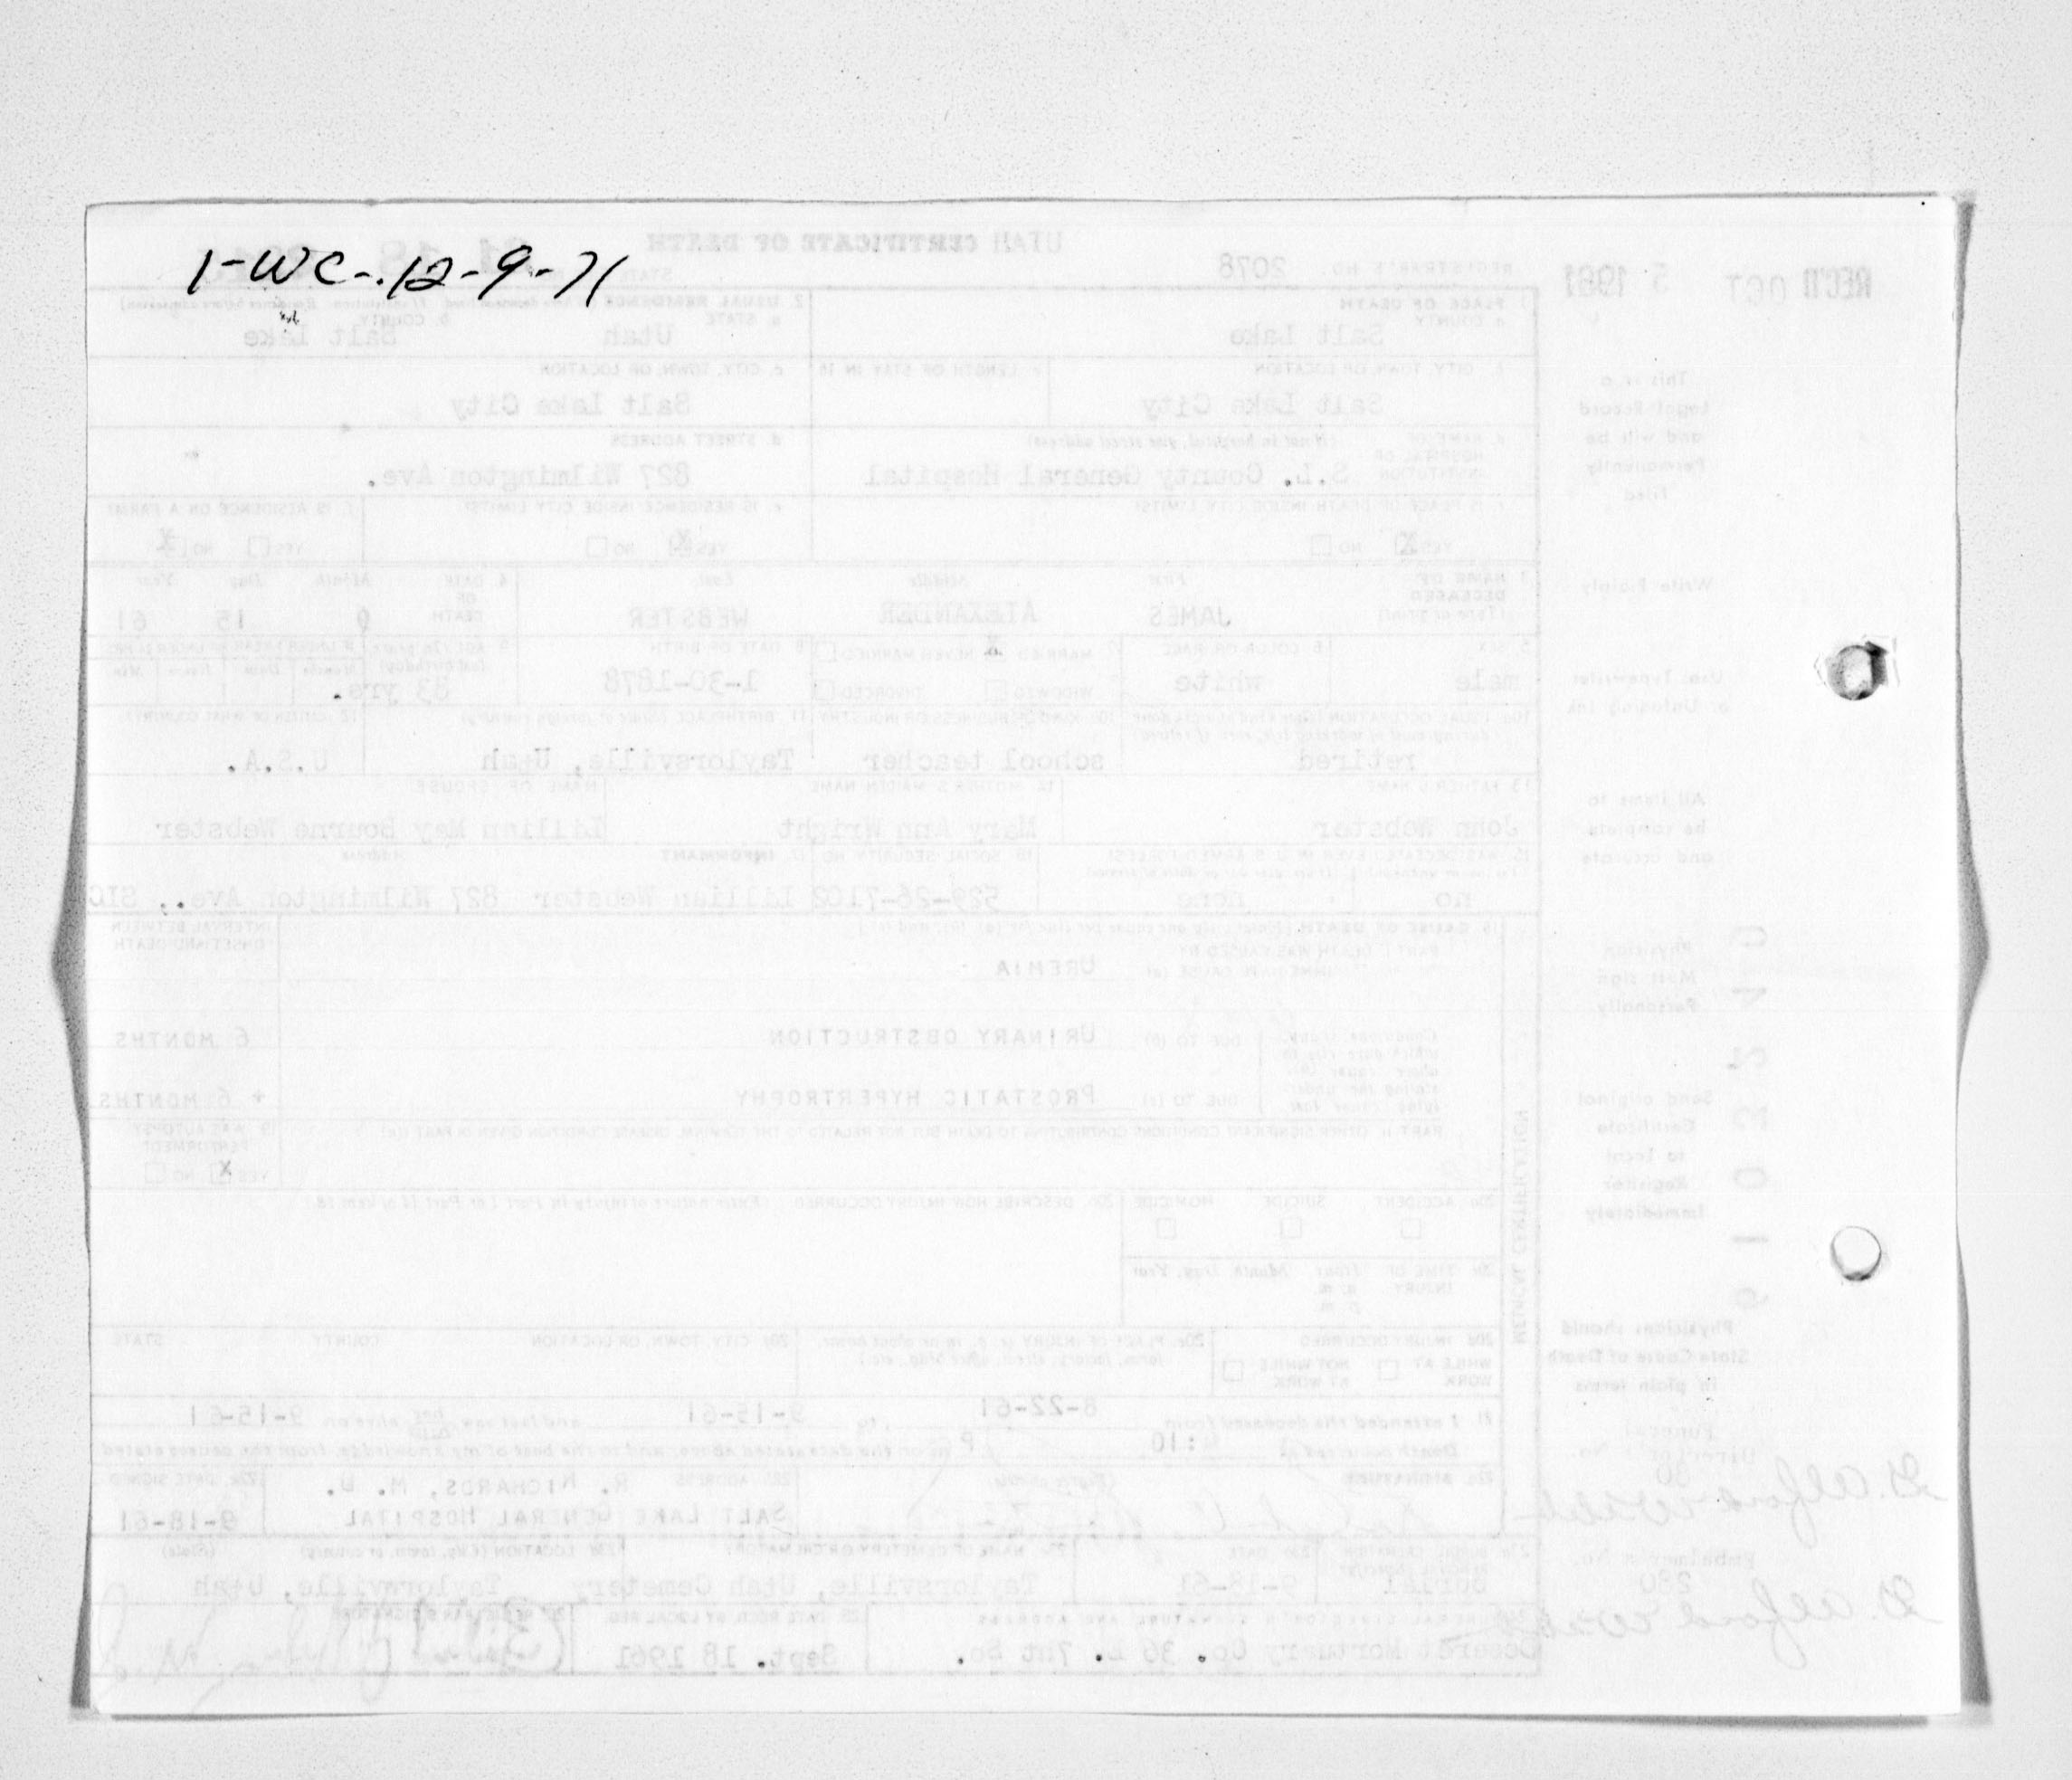 1-WC-12-9-71
UTAH CERTIFICATE OF DEATH
REC'D OCT 5 1961
REGISTRAR'S NO. 2078
1. PLACE OF DEATH
a. COUNTY
Salt Lake
2. USUAL RESIDENCE
a. STATE
Utah
b. COUNTY
Salt Lake
b. CITY, TOWN, OR LOCATION
Salt Lake City
c. LENGTH OF STAY IN 1b
c. CITY, TOWN, OR LOCATION
Salt Lake City
d. NAME OF HOSPITAL OR INSTITUTION (If not in hospital, give street address)
S.L. County General Hospital
d. STREET ADDRESS
827 Wilmington Ave.
e. IS PLACE OF DEATH INSIDE CITY LIMITS?
YES X NO
e. IS RESIDENCE INSIDE CITY LIMITS?
YES X NO
f. IS RESIDENCE ON A FARM?
YES NO X
3. NAME OF DECEASED (Type or print)
First Middle Last
JAMES ALEXANDER WEBSTER
4. DATE OF DEATH
Month Day Year
9 15 61
5. SEX
male
6. COLOR OR RACE
white
7. MARRIED X NEVER MARRIED
WIDOWED DIVORCED
8. DATE OF BIRTH
1-30-1878
9. AGE (In years last birthday)
83 yrs.
10a. USUAL OCCUPATION
retired
10b. KIND OF BUSINESS OR INDUSTRY
school teacher
11. BIRTHPLACE (State or foreign country)
Taylorsville, Utah
12. CITIZEN OF WHAT COUNTRY?
U.S.A.
13. FATHER'S NAME
John Webster
14. MOTHER'S MAIDEN NAME
Mary Ann Wright
NAME OF SPOUSE
Lillian May Bourne Webster
15. WAS DECEASED EVER IN U.S. ARMED FORCES?
no none
16. SOCIAL SECURITY NO.
529-26-7102
17. INFORMANT Address
Lillian Webster 827 Wilmington Ave., SLC
18. CAUSE OF DEATH
PART I. DEATH WAS CAUSED BY:
IMMEDIATE CAUSE (a) UREMIA
INTERVAL BETWEEN ONSET AND DEATH
DUE TO (b) URINARY OBSTRUCTION 6 MONTHS
DUE TO (c) PROSTATIC HYPERTROPHY + 6 MONTHS
PART II. OTHER SIGNIFICANT CONDITIONS CONTRIBUTING TO DEATH BUT NOT RELATED TO THE TERMINAL DISEASE CONDITION GIVEN IN PART I(a)
19. WAS AUTOPSY PERFORMED?
YES X NO
MEDICAL CERTIFICATION
20a. ACCIDENT SUICIDE HOMICIDE
20b. DESCRIBE HOW INJURY OCCURRED
20c. TIME OF INJURY Hour Month, Day, Year
a. m.
p. m.
20d. INJURY OCCURRED
WHILE AT WORK NOT WHILE AT WORK
20e. PLACE OF INJURY
20f. CITY, TOWN, OR LOCATION COUNTY STATE
21. I attended the deceased from 8-22-61 to 9-15-61 and last saw him alive on 9-15-61
Death occurred at 4:10 P m on the date stated above, and to the best of my knowledge, from the causes stated
22a. SIGNATURE
22b. ADDRESS
R. RICHARDS, M. D.
SALT LAKE GENERAL HOSPITAL
22c. DATE SIGNED
9-18-61
Burial
23b. DATE
9-18-61
23c. NAME OF CEMETERY OR CREMATORY
Taylorsville, Utah Cemetery
23d. LOCATION (City, town, or county) (State)
Taylorsville, Utah
24. FUNERAL DIRECTOR'S SIGNATURE AND ADDRESS
Deseret Mortuary Co. 36 E. 7th So.
25. DATE REC'D BY LOCAL REG.
Sept. 18 1961
This is a
Legal Record
and will be
Permanently
Filed
Write Plainly
Use Typewriter
or Unfading Ink
All items to
be complete
and accurate
Physician
Must sign
Personally
Send original
Certificate
to Local
Registrar
Immediately
Physicians should
State Cause of Death
in plain terms
Funeral
Director's No.
Embalmer's No.